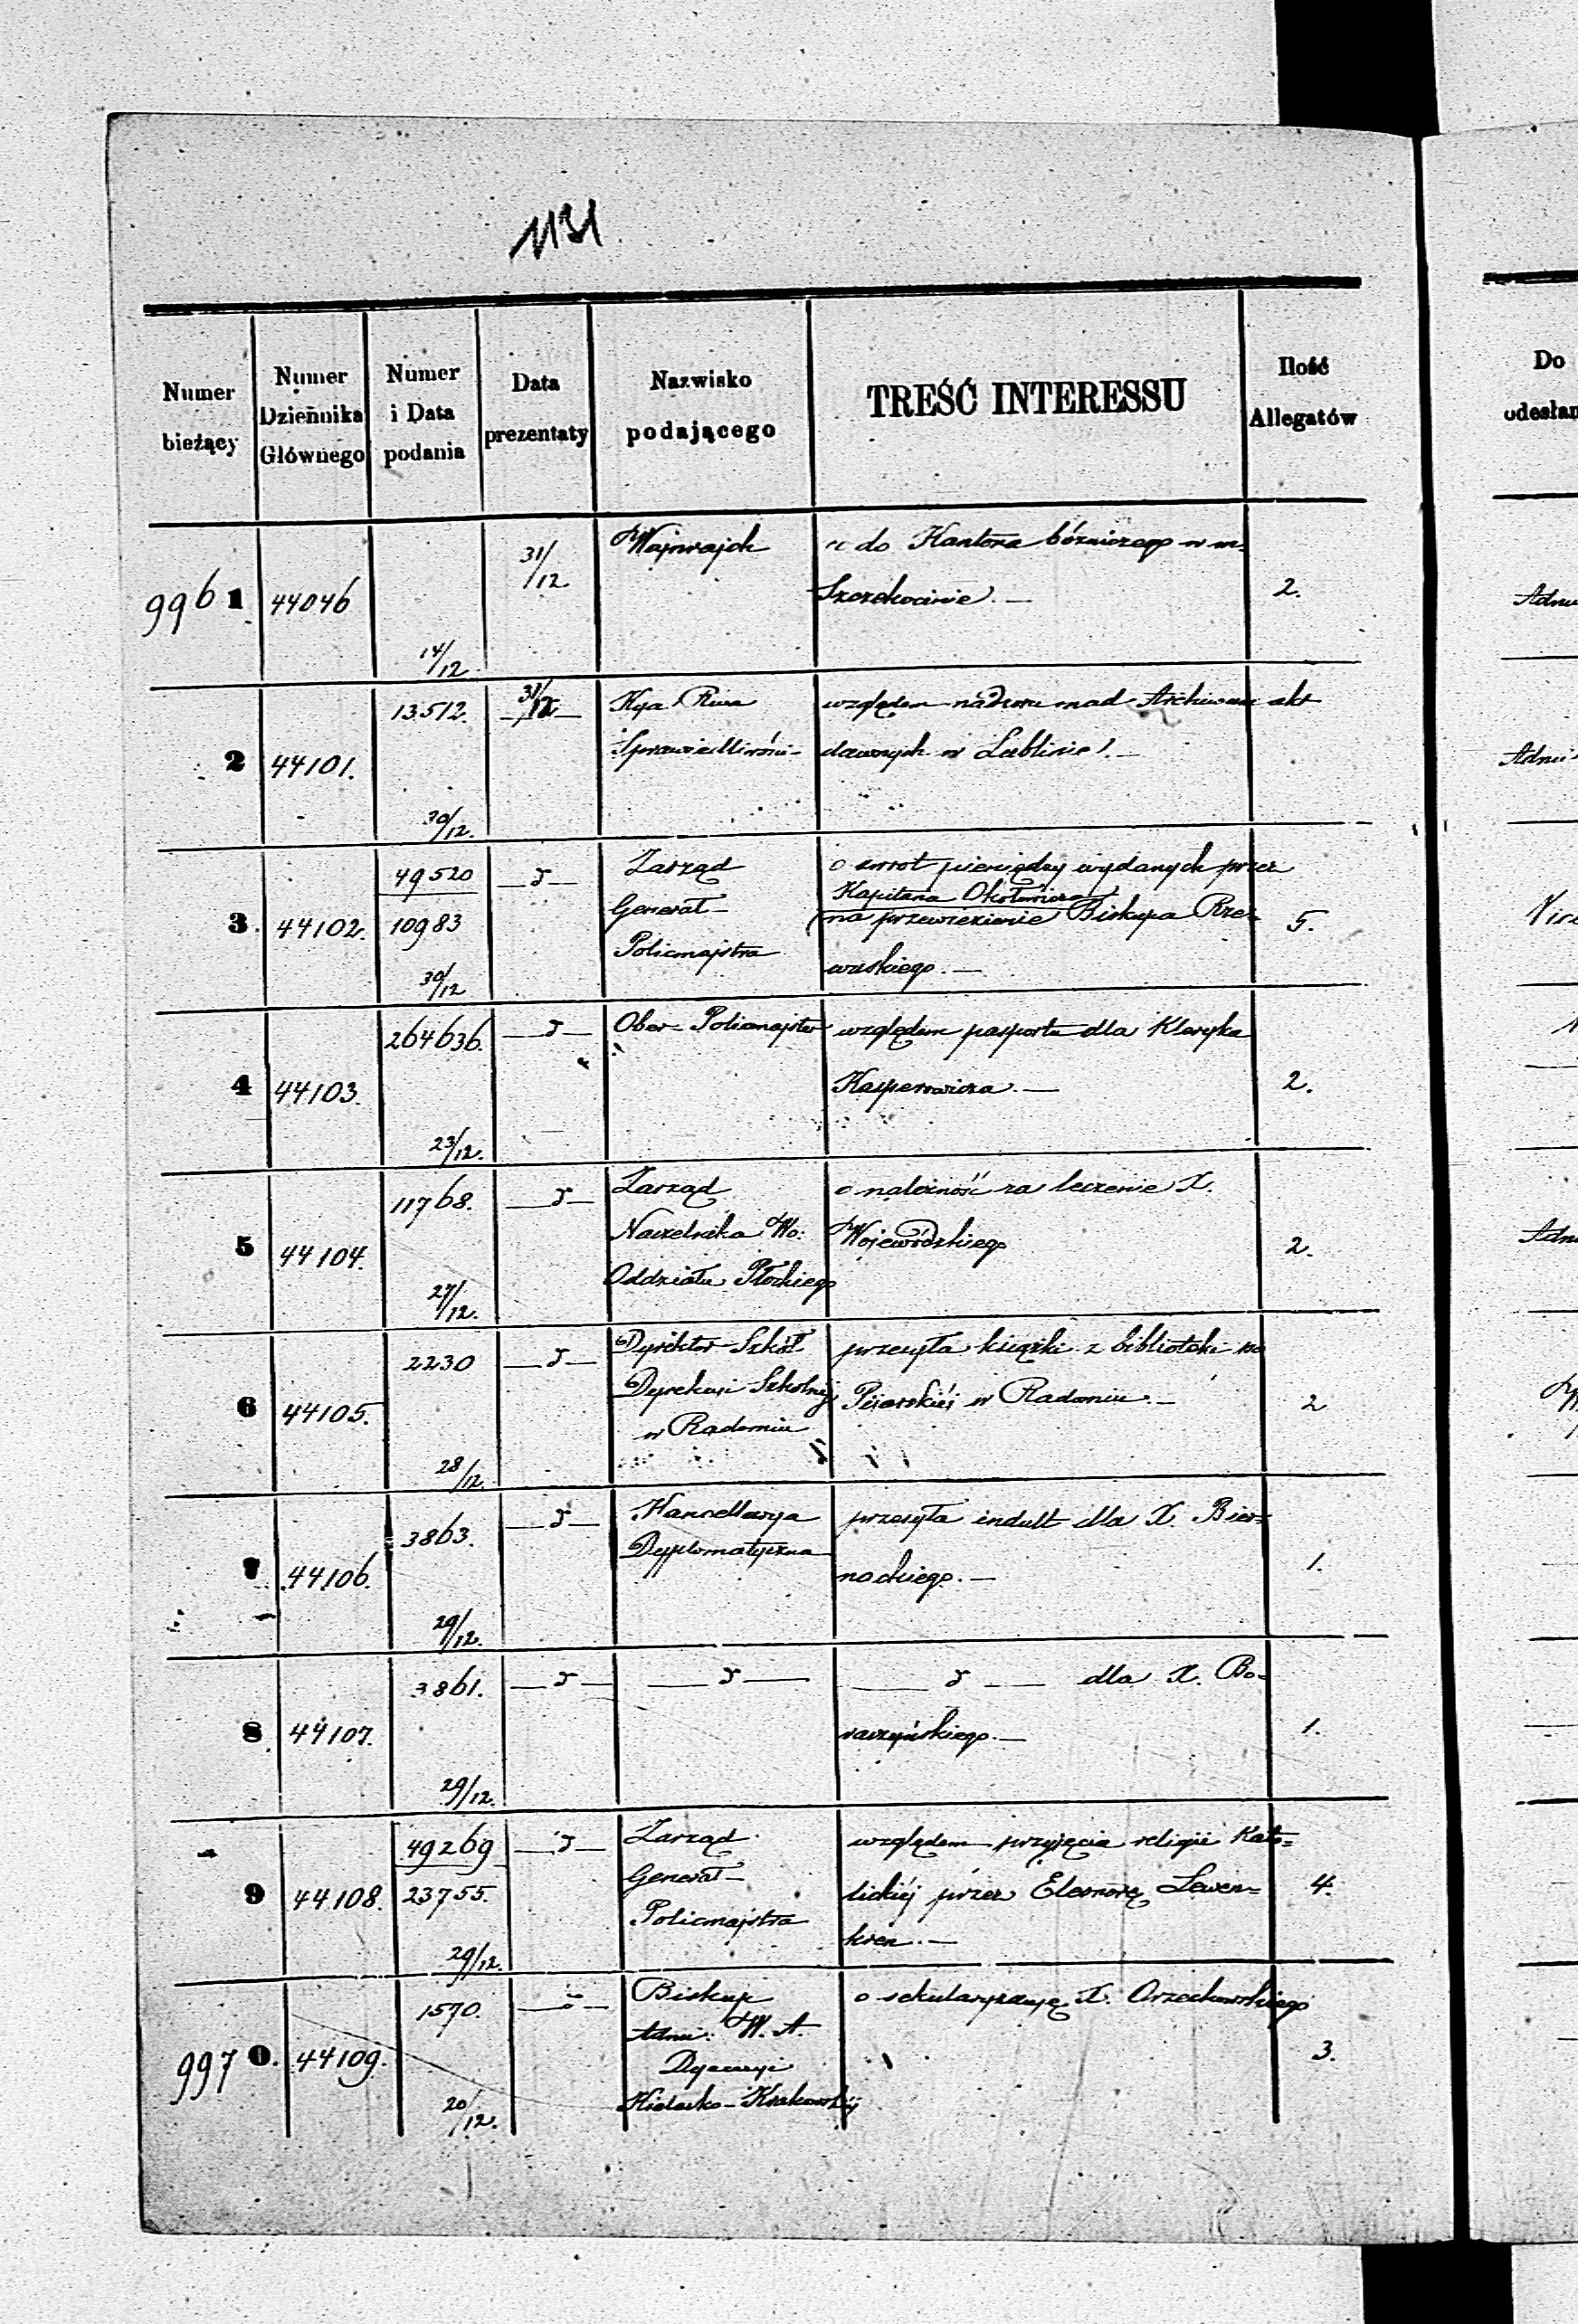 1131
Numer bieżący
Numer Dziennika Głównego
Numer i Data podania
Data prezentaty
Nazwisko podającego
TREŚĆ INTERESSU
Ilość Allegatów
Do odesłan
9961 44046 14/12 31/12 Wajnrajch
do Kantora bóźniczego w m.
Szczekocinie. —
2.
Adm
2 44101. 13512. 30/12. 31/12
Kya Rwa
Sprawiedliwości
względem nadzoru nad Archiwum akt
dawnych w Lublinie. —
Adm
3. 44102. 49520 10983 30/12 — d —
Zarząd
Generał-
Policmajstra
o zwrot pieniędzy wydanych przez
Kapitana
na przewiezienie Biskupa Rze-
wuskiego. —
5.
4 44103. 264636. 23/12. — d —
Ober-Policmajster
względem pasportu dla Kleryka
Kasperowicza. —
2.
5 44104. 11768. 27/12. — d —
Zarząd
Naczelnika Wo:
Oddziału Płockiego
o należność za leczenie X.
Wojewódzkiego
2.
Adm
6 44105. 2230 28/12. — d —
Dyrektor Szkół
Dyrekcyi Szkolnéj
w Radomiu
przesyła książki z biblioteki po
Pijarskiéj w Radomiu. —
2
7 44106. 3863. 29/12. — d —
Kancellarya
Dyplomatyczna
przesyła indult dla X. Bier-
nackiego. —
1.
8 44107. 3861. 29/12. — d — — d —
— d — dla X. Bo-
raczyńskiego. —
1.
9 44108. 49269 23755. 29/12. — d —
Zarząd
Generał-
Policmajstra
względem przyjęcia religii Kato-
lickiéj przez Eleonorę Lewen-
4.
9970. 44109. 1570. 20/12. — " —
Biskup
Adm: W. A.
Dyecezyi
Kielecko-Krakowskiéj
o sekularyzacyę X. Orzechowskiego
3.